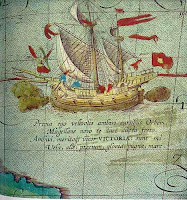 Prima ego velivolis ambivi cursibus Orbem,
Magellane novo te duce ducta freto.
Ambivi, meritoq. vocor VICTORIA: sunt mî
Vela, alæ; precium, gloria; pugna, mare.